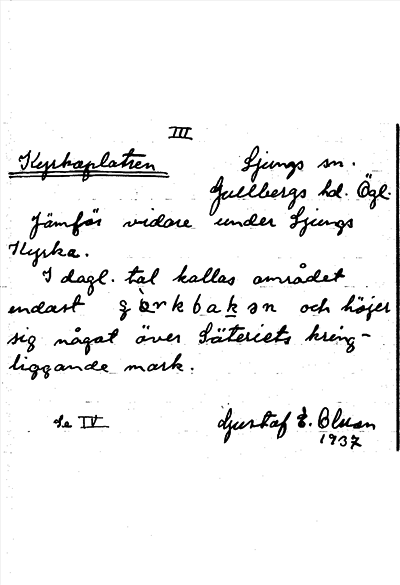 III
Kyrkaplatsen Ljungs sn.
Gullbergs hd. Ögl.
Jämför vidare under Ljungs
Kyrka.
I dagl. tal kallas området
endast och höjer
sig något över Säteriets kring-
liggande mark.
Se IV Gustaf E. Olsson
1937